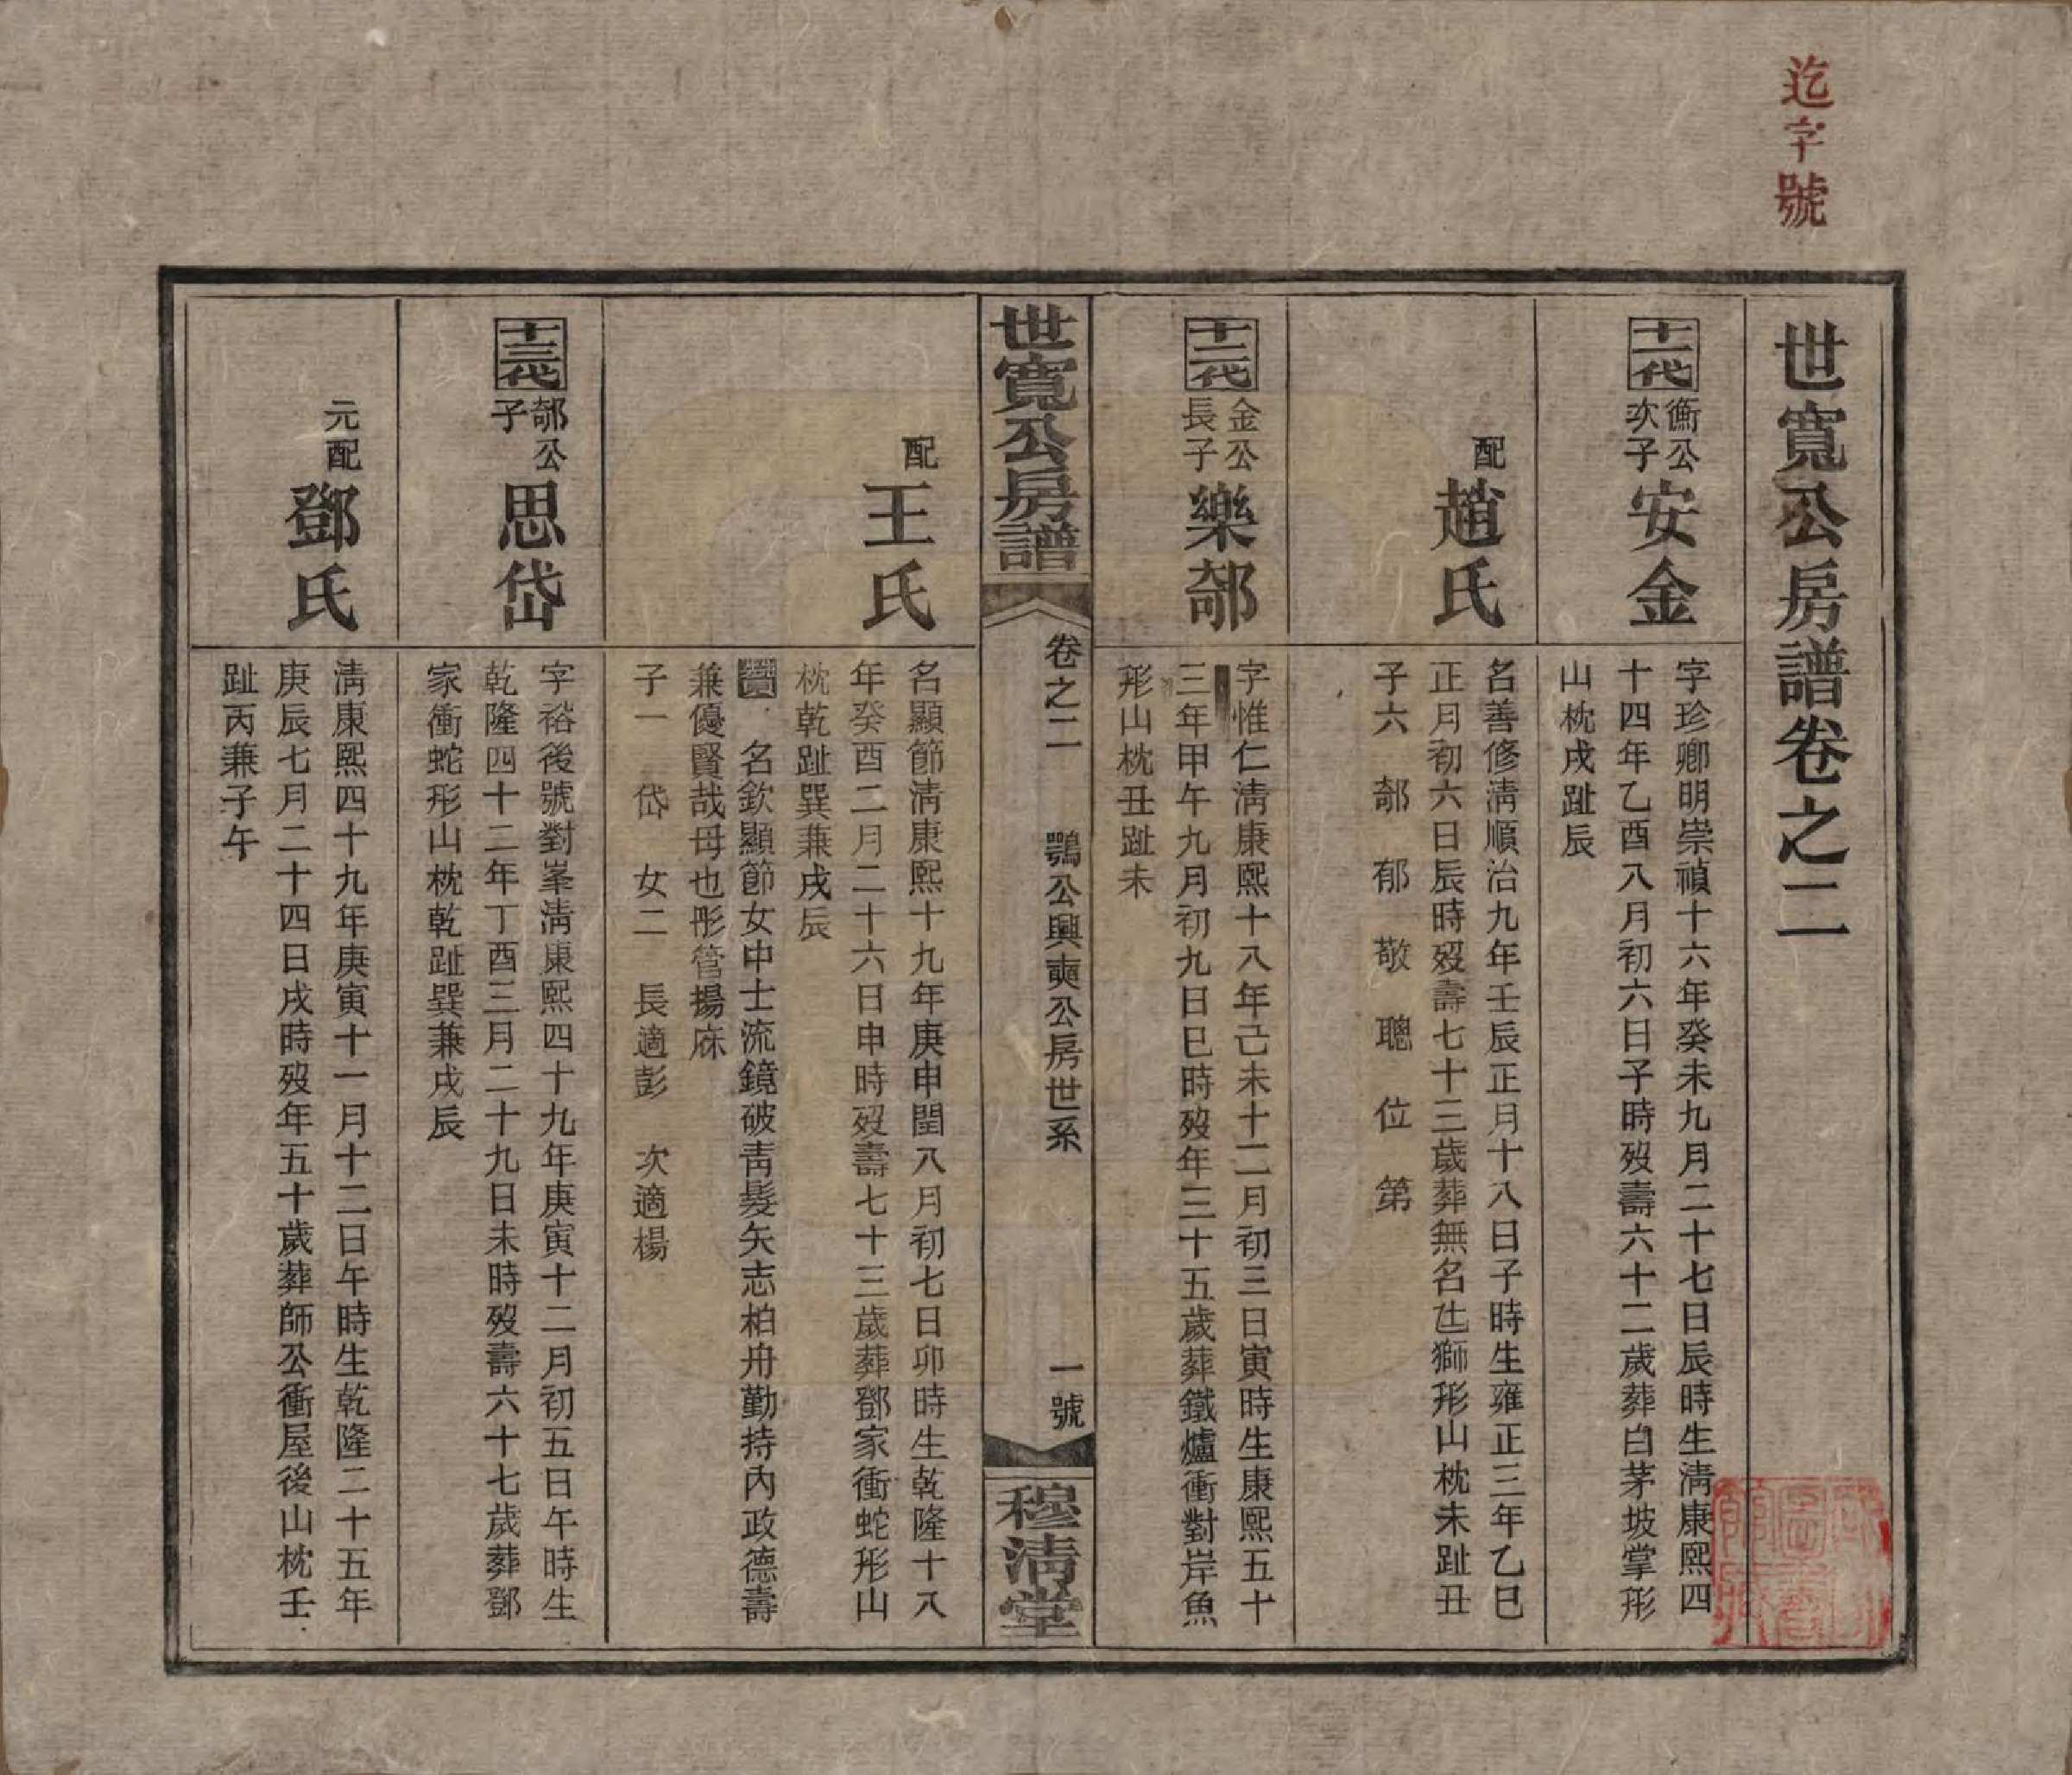 迄字號
世寬公房譜卷之二
十一代
衡公次子
安金
字珍卿明崇禎十六年癸未九月二十七日辰時生淸康熙四
十四年乙酉八月初六日子時歿壽六十二歲葬白茅坡掌形
山枕戌趾辰
配
趙氏
名善修淸順治九年壬辰正月十八日子時生雍正三年乙巳
正月初六日辰時歿壽七十三歲葬無名氹獅形山枕未趾丑
子六　郀　郁　敬　聰　位　第
十二代
金公長子
樂郀
字惟仁淸康熙十八年己未十二月初三日寅時生康熙五十
三年甲午九月初九日巳時歿年三十五歲葬鐵爐衝對岸魚
形山枕丑趾未
世寬公房譜
卷之二　鶚公興奭公房世系
一號
穆淸堂
配
王氏
名顯節淸康熙十九年庚申閏八月初七日卯時生乾隆十八
年癸酉二月二十六日申時歿壽七十三歲葬鄧家衝蛇形山
枕乾趾巽兼戌辰
贊　名欽顯節女中士流鏡破靑髮矢志柏舟勤持內政德壽
兼優賢哉母也彤管揚庥
子一　岱　女二　長適彭　次適楊
十三代
郀公子
思岱
字裕後號對峯淸康熙四十九年庚寅十二月初五日午時生
乾隆四十二年丁酉三月二十九日未時歿壽六十七歲葬鄧
家衝蛇形山枕乾趾巽兼戌辰
元配
鄧氏
淸康熙四十九年庚寅十一月十二日午時生乾隆二十五年
庚辰七月二十四日戌時歿年五十歲葬師公衝屋後山枕壬
趾丙兼子午